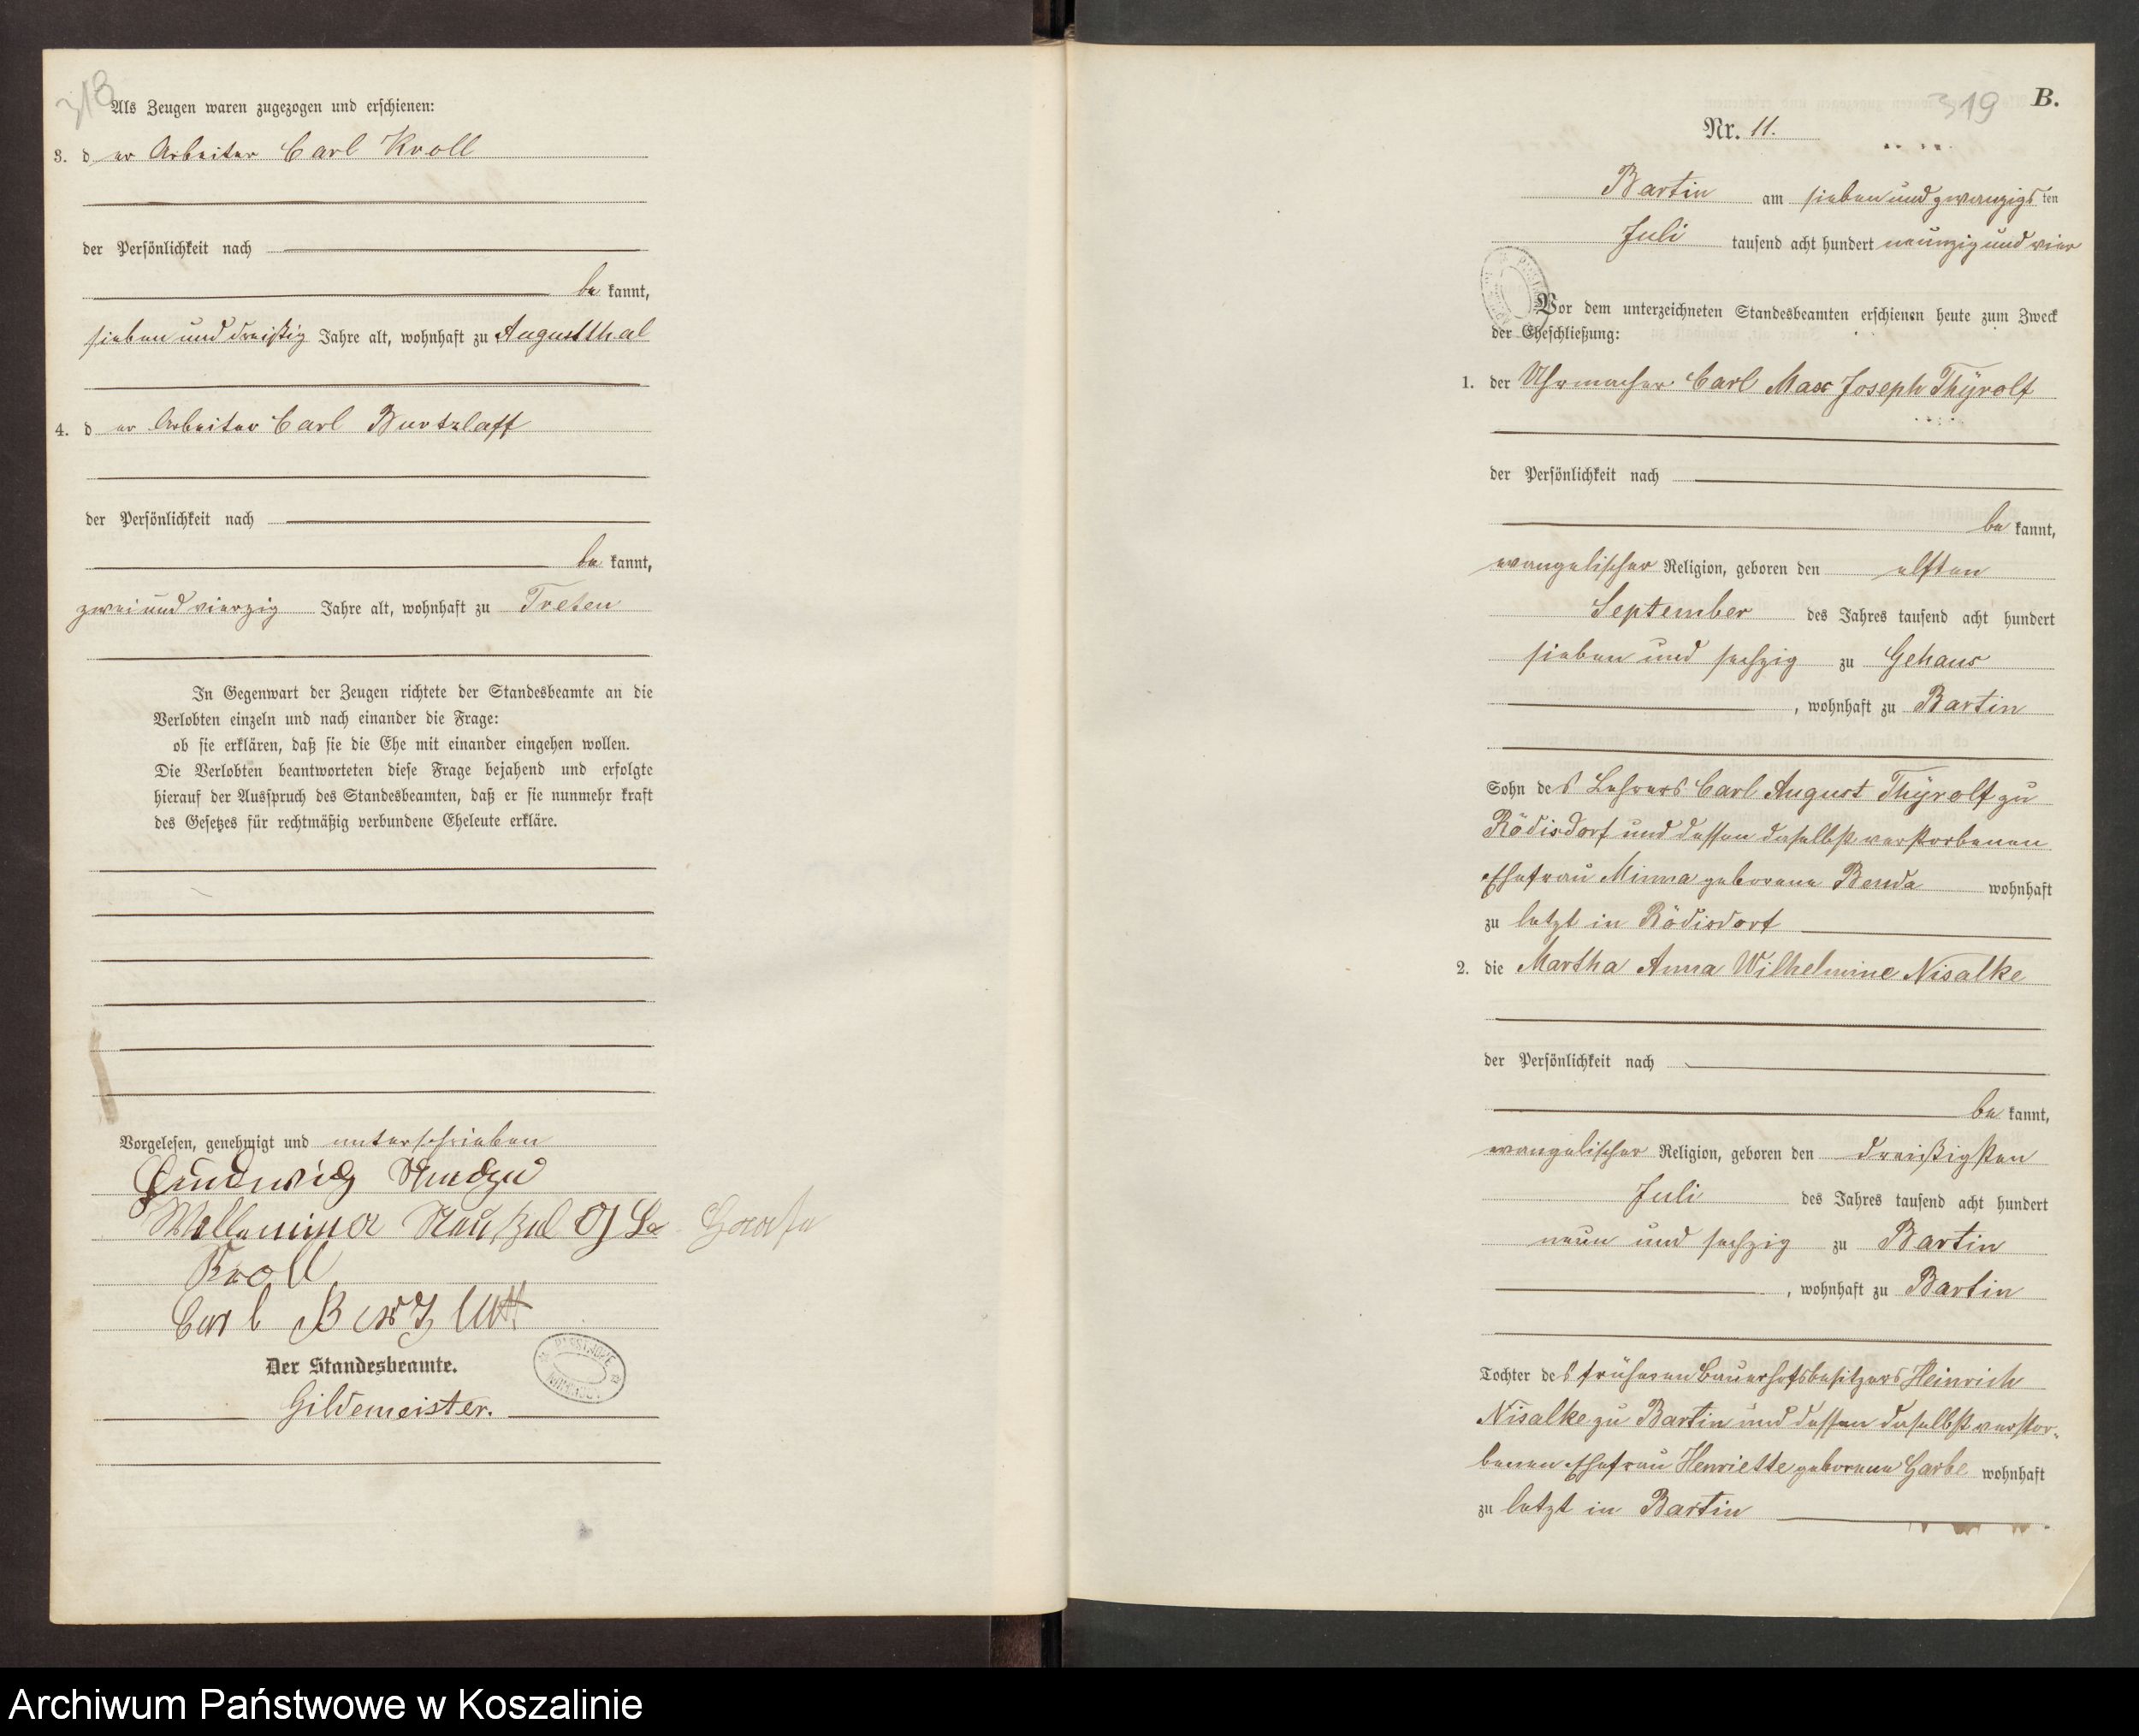 318
Als Zeugen waren zugezogen und erschienen:
3. d er Arbeiter Carl Kroll
der Persönlichkeit nach
be kannt,
sieben und dreißig Jahre alt, wohnhaft zu Augustthal
4. d er Arbeiter Carl Burtzlaff
der Persönlichkeit nach
be kannt,
zwei und vierzig Jahre alt, wohnhaft zu Treten
In Gegenwart der Zeugen richtete der Standesbeamte an die
Verlobten einzeln und nach einander die Frage:
ob sie erklären, daß sie die Ehe mit einander eingehen wollen.
Die Verlobten beantworteten diese Frage bejahend und erfolgte
hierauf der Ausspruch des Standesbeamten, daß er sie nunmehr kraft
des Gesetzes für rechtmäßig verbundene Eheleute erkläre.
Vorgelesen, genehmigt und unterschrieben
Kroll
Carl
Der Standesbeamte.
Gildemeister.
319 B.
Nr. 11.
Bartin am sieben und zwanzigs ten
Juli tausend acht hundert neunzig und vier
Vor dem unterzeichneten Standesbeamten erschienen heute zum Zweck
der Eheschließung:
1. der Uhrmacher Carl Max Joseph Thÿrolf
der Persönlichkeit nach
be kannt,
evangelischer Religion, geboren den elften
September des Jahres tausend acht hundert
sieben und sechzig zu Gehaus
, wohnhaft zu Bartin
Sohn des Lehrers Carl August Thÿrolf zu
Rödisdorf und dessen daselbst verstorbenen
Ehefrau Minna geborene Benda wohnhaft
zu letzt in Rödisdorf
2. die Martha Anna Wilhelmine Nisalke
der Persönlichkeit nach
be kannt,
evangelischer Religion, geboren den dreißigsten
Juli des Jahres tausend acht hundert
neun und sechzig zu Bartin
, wohnhaft zu Bartin
Tochter des früheren Bauerhofsbesitzers Heinrich
Nisalke zu Bartin und dessen daselbst verstor-
benen Ehefrau Henriette geborene Garbe wohnhaft
zu letzt in Bartin
Archiwum Państwowe w Koszalinie